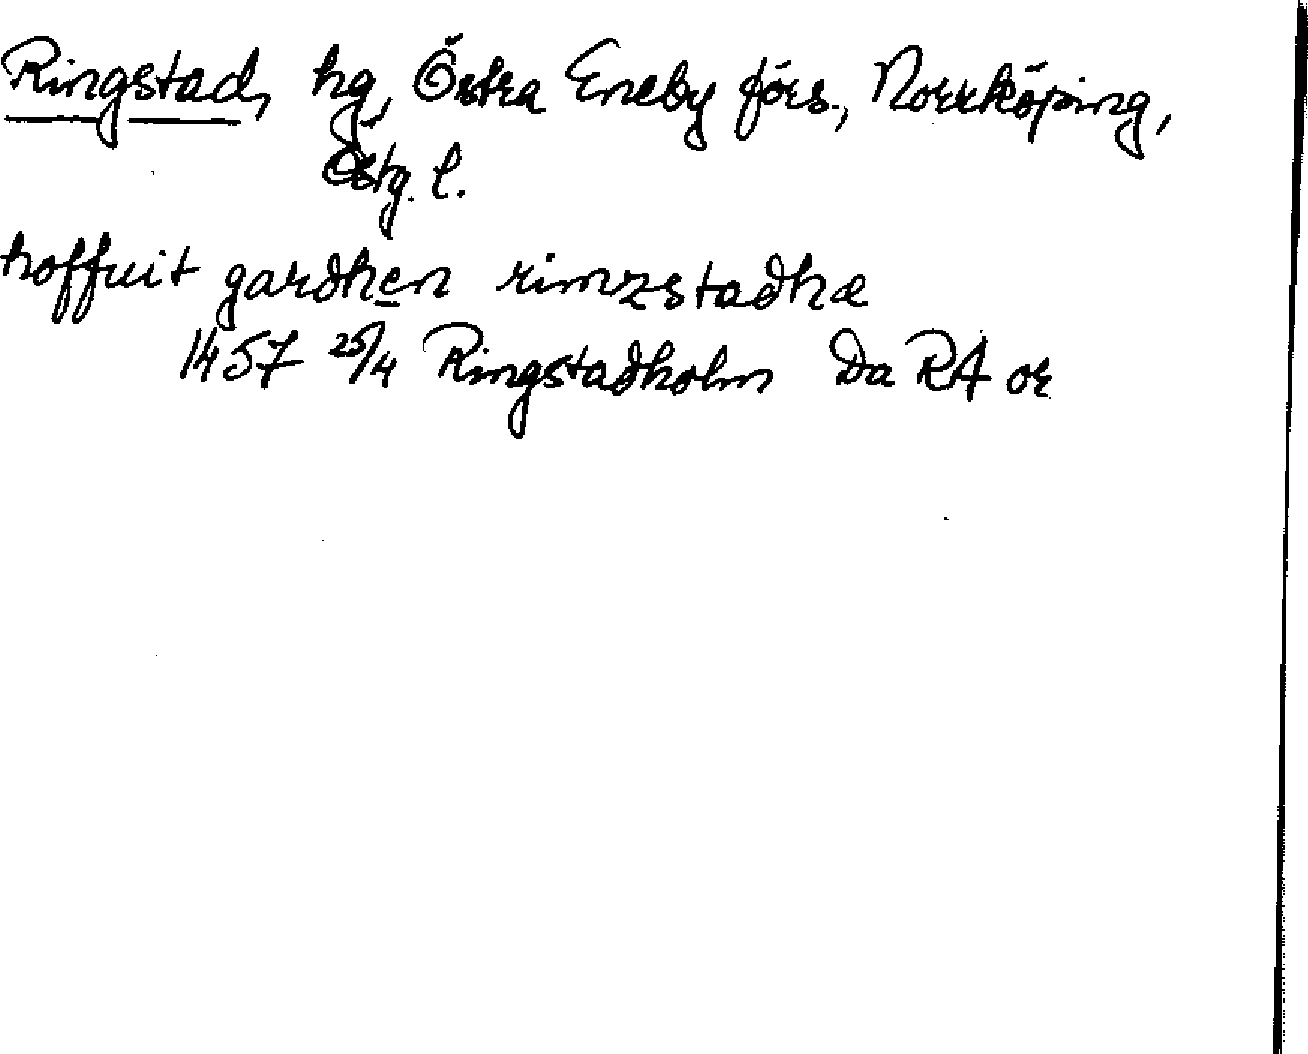 Ringstad, hg, Östra Eneby förs., Norrköping,
Östg. l.
hoffuit gardhen rimzstadhæ
1457 25/4 Ringstadholm Da RA or